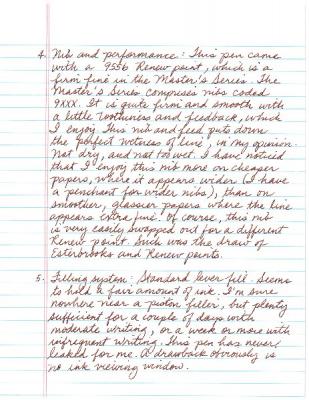 4. Nib and performance: This pen came
with a 9556 Renew point, which is a
firm fine in the Master's Series. The
Master's Series comprises nibs coded
9XXX. It is quite firm and smooth with
a little toothiness and feedback, which
I enjoy. This nib and feed puts down
the 'perfect wetness of line', in my opinion.
Not dry, and not too wet. I have noticed
that I enjoy this nib more on cheaper
papers, where it appears wider (I have
a penchant for wider nibs), than on
smoother, glassier papers where the line
appears extra fine. Of course, this nib
is very easily swapped out for a different
Renew point. Such was the draw of
Esterbrooks and Renew points.
5. Filling system: Standard lever fill. Seems
to hold a fair amount of ink. I'm sure
nowhere near a piston filler, but plenty
sufficient for a couple of days with
moderate writing, or a week or more with
infrequent writing. This pen has never
leaked for me. A drawback obviously is
no ink viewing window.